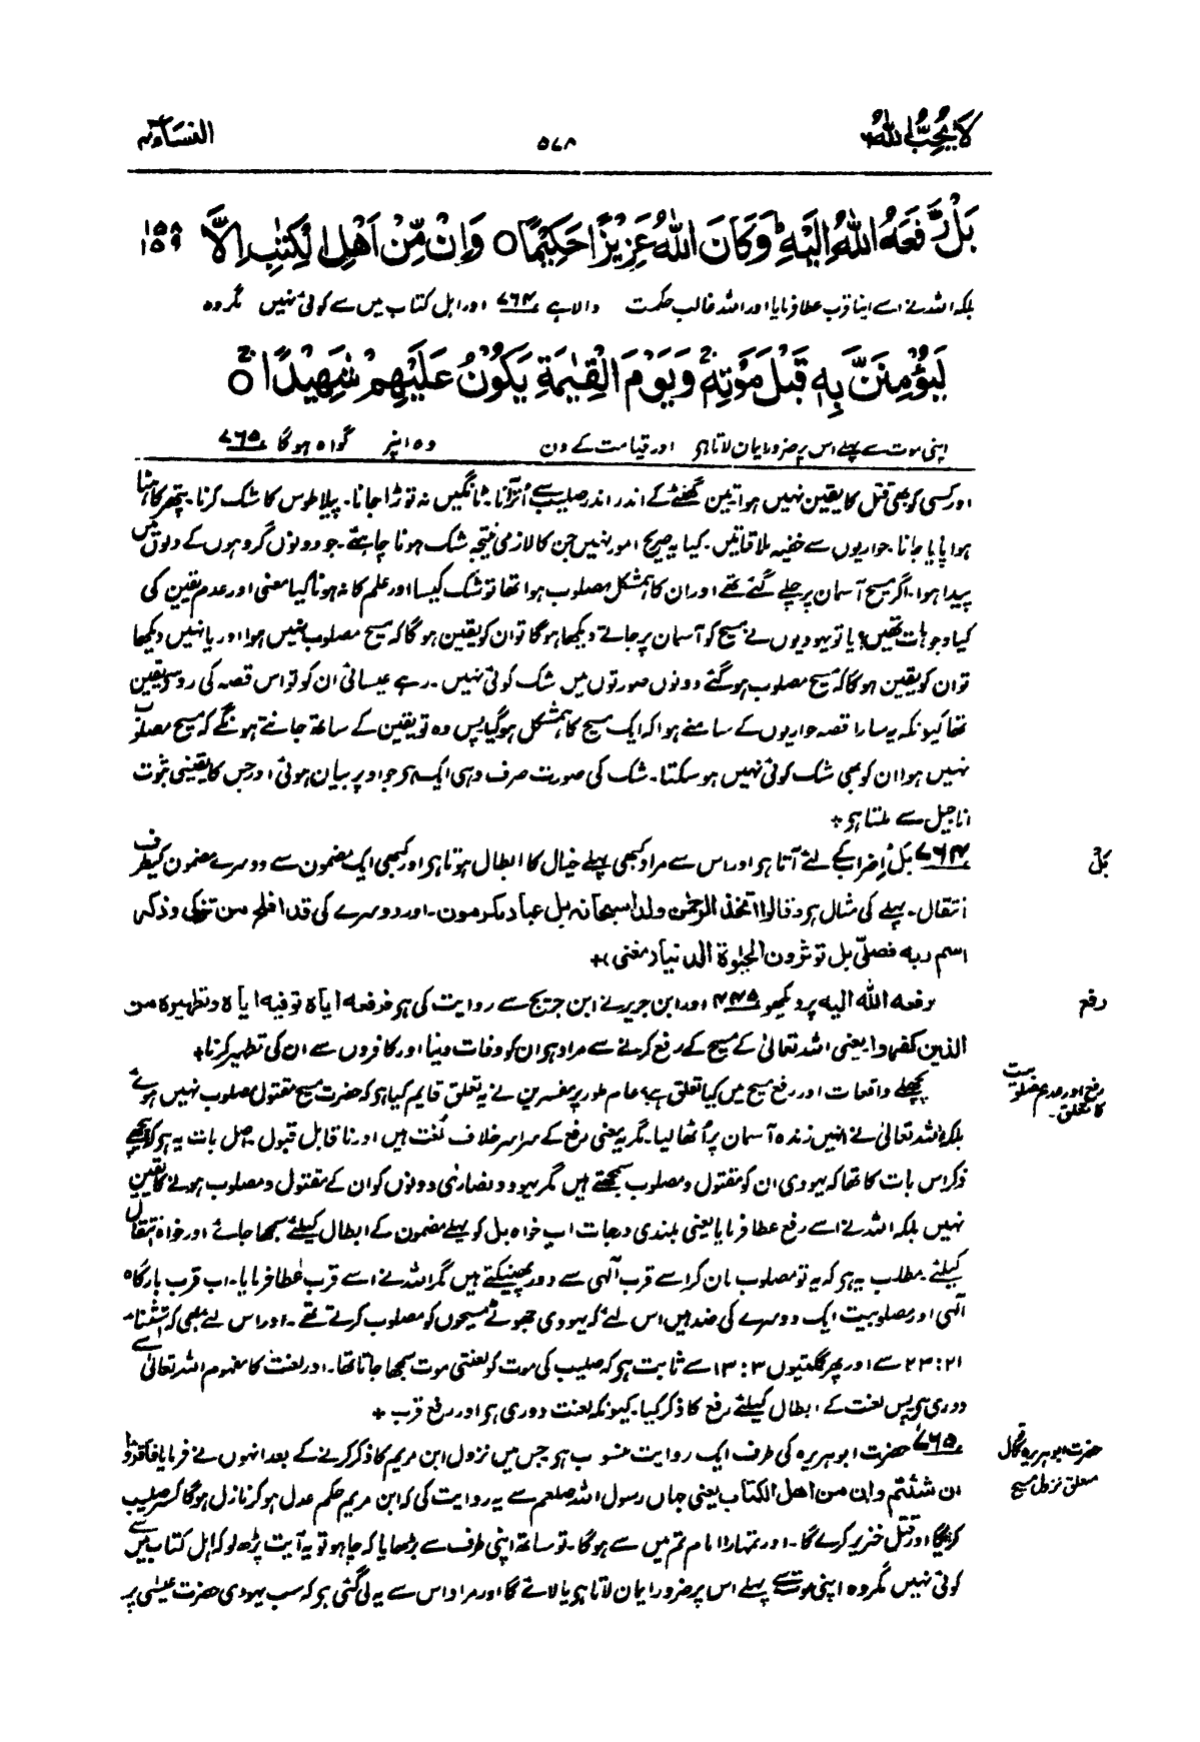 لَا يُحِبُّ اللهُ ۵۷۸ النساء ۴
بَلْ رَّفَعَهُ اللهُ اِلَيْهِ ؕ وَكَانَ اللهُ عَزِيْزًا حَكِيْمًا ۝ وَاِنْ مِّنْ اَهْلِ الْكِتٰبِ اِلَّا ۱۵۸ ۱۵۹
بلکہ اللہ نے اسے اپنا قرب عطا فرمایا اور اللہ غالب حکمت والا ہے ۷۶۴ اور اہل کتاب میں سے کوئی نہیں مگر وہ
لَيُؤْمِنَنَّ بِهٖ قَبْلَ مَوْتِهٖ ۚ وَيَوْمَ الْقِيٰمَةِ يَكُوْنُ عَلَيْهِمْ شَهِيْدًا ۝
اپنی موت سے پہلے اس پر ضرور ایمان لاتا ہو اور قیامت کے دن وہ ان پر گواہ ہوگا ۷۶۵
اور کسی کو بھی قتل کا یقین نہیں ہوا تین گھنٹے کے اندر اندر صلیب سے اُتر آنا۔ ٹانگیں نہ توڑا جانا۔ پیلاطوس کا شک کرنا۔ پتھر کا ہٹا
ہوا پایا جانا۔ حواریوں سے خفیہ ملاقاتیں۔ کیا یہ صریح امور نہیں جن کا لازمی نتیجہ شک ہونا چاہئے۔ جو دونوں گروہوں کے دلوں میں
پیدا ہوا۔ اگر مسیح آسمان پر چلے گئے تھے اور ان کا ہمشکل مصلوب ہوا تھا تو شک کیسا اور علم کا نہ ہونا کیا معنی اور عدم یقین کی
کیا وجوہات تھیں؟ یا تو یہودیوں نے مسیح کو آسمان پر جاتے دیکھا ہوگا تو ان کو یقین ہوگا کہ مسیح مصلوب نہیں ہوا اور یا نہیں دیکھا
تو ان کو یقین ہوگا کہ مسیح مصلوب ہو گئے دونوں صورتوں میں شک کوئی نہیں۔ رہے عیسائی ان کو تو اس قصہ کی رو سے یقین
تھا کیونکہ یہ سارا قصہ حواریوں کے سامنے ہوا کہ ایک مسیح کا ہمشکل ہوگیا پس وہ تو یقین کے ساتھ جانتے ہونگے کہ مسیح مصلوب
نہیں ہوا ان کو بھی شک کوئی نہیں ہو سکتا۔ شک کی صورت صرف وہی ایک ہو جو اوپر بیان ہوئی اور جس کا یقینی ثبوت
اناجیل سے ملتا ہو+
بل
۷۶۴ بَلْ اِضراب کے لئے آتا ہو اور اس سے مراد کبھی پہلے خیال کا ابطال ہوتا ہو اور کبھی ایک مضمون سے دوسرے مضمون کیطرف
انتقال۔ پہلے کی مثال ہو وقالوا اتخذ الرحمٰن ولداً سبحانہ بل عباد مکرمون۔ اور دوسرے کی قد افلح من تزکی وذکر
اسم ربہ فصلّٰی بل توثرون الحیٰوة الدنیا (مغنی)+
رفع
رفعہ اللہ الیہ پر دیکھو ۴۳۵ اور ابن جریر نے ابن جریج سے روایت کی ہو فرفعہ ایاہ توفیہ ایاہ وتطهیرہ من
الذین کفروا یعنی اللہ تعالیٰ کے مسیح کے رفع کرنے سے مراد ہو ان کو وفات دینا اور کافروں سے ان کی تطہیر کرنا+
رفع اور عدم مصلوبیت
کا تعلق۔
پچھلے واقعات اور رفع مسیح میں کیا تعلق ہے؟ عام طور پر مفسرین نے یہ تعلق قایم کیا ہو کہ حضرت مسیح مقتول مصلوب نہیں ہوئے
بلکہ اللہ تعالیٰ نے انہیں زندہ آسمان پر اُٹھا لیا۔ مگر یہ معنی رفع کے سراسر خلاف لُغت ہیں اور ناقابل قبول۔ اصل بات یہ ہو کہ پیچھے
ذکر اس بات کا تھا کہ یہودی ان کو مقتول و مصلوب سمجھتے ہیں مگر یہود و نصاریٰ دونوں کو ان کے مقتول و مصلوب ہونے کا یقین
نہیں بلکہ اللہ نے اسے رفع عطا فرمایا یعنی بلندی درجات اب خواہ بل کو پہلے مضمون کے ابطال کیلئے سمجھا جائے اور خواہ انتقال
کیلئے۔ مطلب یہ ہو کہ یہ تو مصلوب مان کر اسے قرب الٰہی سے دور پھینکتے ہیں مگر اللہ نے اسے قرب عطا فرمایا۔ اب قرب بارگاہ
الٰہی اور مصلوبیت ایک دوسرے کی ضد ہیں اس لئے کہ یہودی جھوٹے مسیحوں کو مصلوب کرتے تھے۔ اور اس لئے بھی کہ استثناء
۲۳:۲۱ سے اور پھر گلتیوں ۱۳:۳ سے ثابت ہو کہ صلیب کی موت کو لعنتی موت سمجھا جاتا تھا۔ اور لعنت کا مفہوم اللہ تعالیٰ سے
دوری ہو پس لعنت کے ابطال کیلئے رفع کا ذکر کیا۔ کیونکہ لعنت دوری ہو اور رفع قرب +
حضرت ابوہریرہ کا قول
متعلق نزول مسیح
۷۶۵ حضرت ابوہریرہ کی طرف ایک روایت منسوب ہو جس میں نزول ابن مریم کا ذکر کرنے کے بعد انہوں نے فرمایا فاقرؤا
ان شئتم وان من اهل الکتاب یعنی جہاں رسول اللہ صلعم سے یہ روایت کی کہ ابن مریم حکم عدل ہو کر نازل ہوگا کسر صلیب
کریگا اور قتل خنزیر کرے گا۔ اور تمہارا امام تم میں سے ہوگا۔ تو ساتھ اپنی طرف سے بڑھایا کہ چاہو تو یہ آیت پڑھ لو کہ اہل کتاب میں سے
کوئی نہیں مگر وہ اپنی موت سے پہلے اس پر ضرور ایمان لاتا ہو یا لائے گا اور مراد اس سے یہ لی گئی ہو کہ سب یہودی حضرت عیسٰی پر